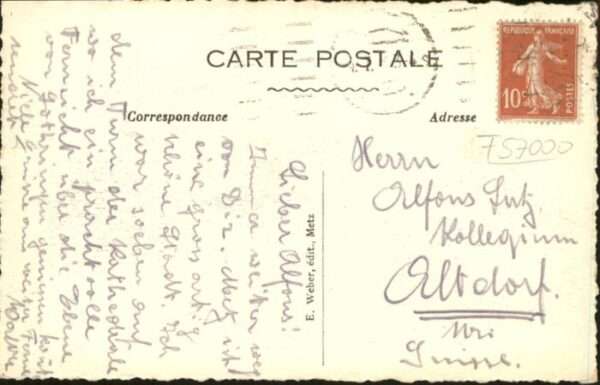 CARTE POSTALE
Correspondance
Adresse
RÉPUBLIQUE FRANÇAISE
10c
POSTES
757000
Herrn
Alfons Lutz
Kollegium
Altdorf.
Uri
Suisse.
E. Weber, édit., Metz
Lieber Alfons!
Immer weiter weg
von Dir. Metz ist
eine grossartig
schöne Stadt. Ich
war soeben auf
dem Turm der Kathedrale
wo ich ein prachtvolle
Fernsicht über die Ebene
von Lothringen geniessen
Viele Grüsse aus weiter Ferne